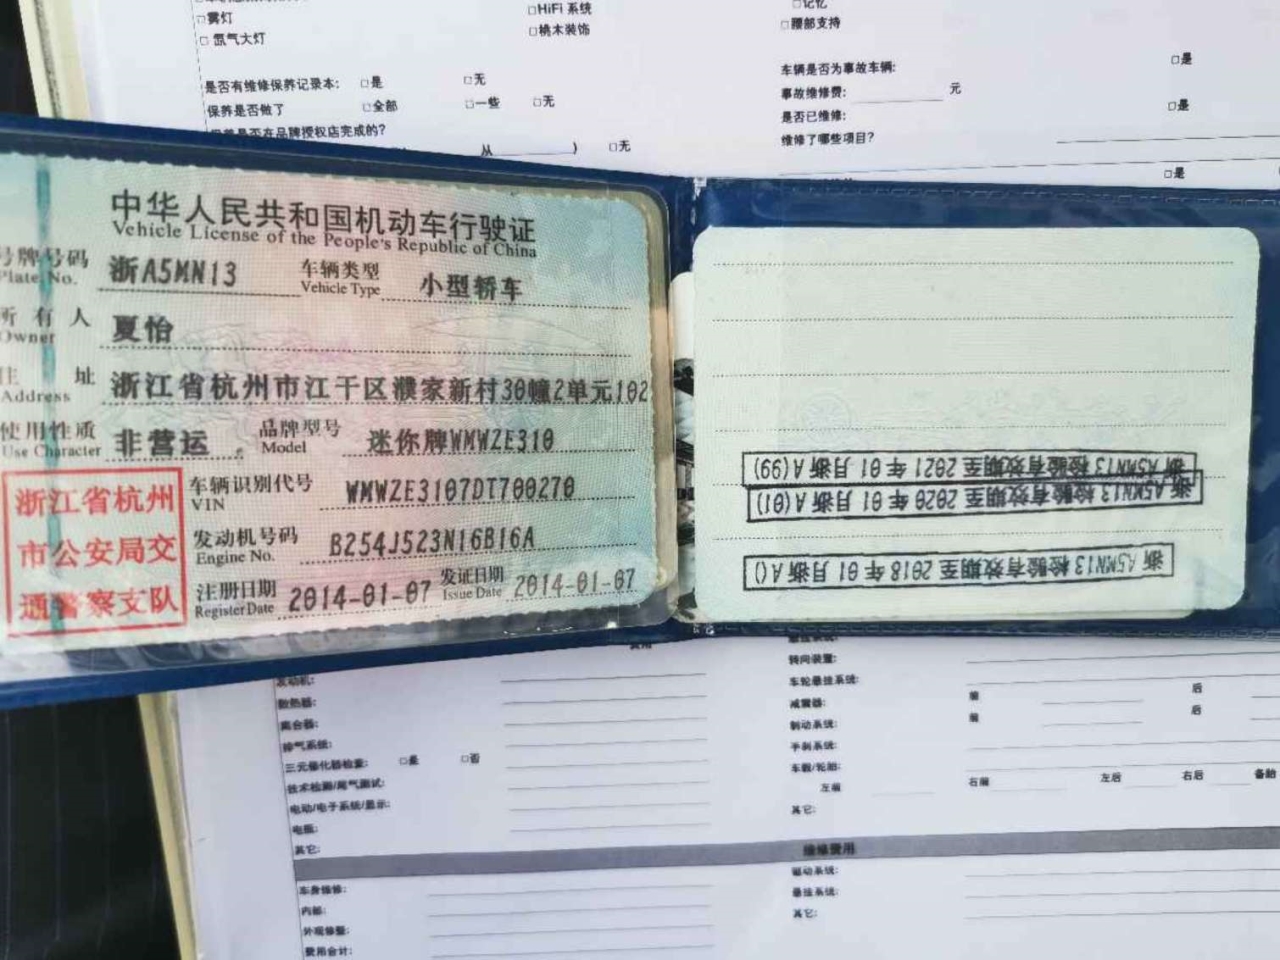 □雾灯
□氙气大灯
□HiFi 系统
□桃木装饰
□记忆
□腰部支持
是否有维修保养记录本: □是 □无
保养是否做了 □全部 □一些 □无
保养是否在品牌授权店完成的?
从 ) □无
车辆是否为事故车辆: □是
事故维修费: 元
是否已维修: □是
维修了哪些项目?
□是
中华人民共和国机动车行驶证
Vehicle License of the People's Republic of China
号牌号码 浙A5MN13 车辆类型 小型轿车
Plate No. Vehicle Type
所有人 夏怡
Owner
住址 浙江省杭州市江干区濮家新村30幢2单元102
Address
使用性质 非营运 品牌型号 迷你牌WMWZE310
Use Character Model
浙江省杭州
市公安局交
通警察支队
车辆识别代号 WMWZE3107DT700270
VIN
发动机号码 B254J523N16B16A
Engine No.
注册日期 2014-01-07 发证日期 2014-01-07
Register Date Issue Date
浙A5MN13检验有效期至2021年01月浙A(99)
浙A5MN13检验有效期至2020年01月浙A(01)
浙A5MN13检验有效期至2018年01月浙A()
费用
发动机:
散热器:
离合器:
排气系统:
三元催化器检查: □是 □否
技术检测/尾气测试:
电动/电子系统/显示:
电瓶:
其它:
转向装置:
车轮悬挂系统: 前 后
减震器: 前 后
制动系统:
手刹系统:
车毂/轮胎:
左前 右前 左后 右后 备胎
其它:
维修费用
车身维修:
内部:
外观修整:
费用合计:
驱动系统:
悬挂系统:
其它: